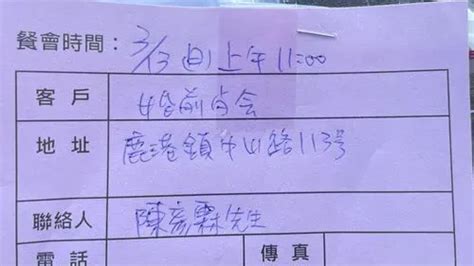 餐會時間：3/13 (日) 上午 11:00
客戶 婚前点会
地址 鹿港鎮中山路113号
聯絡人 陳彥霖先生
電話 傳真